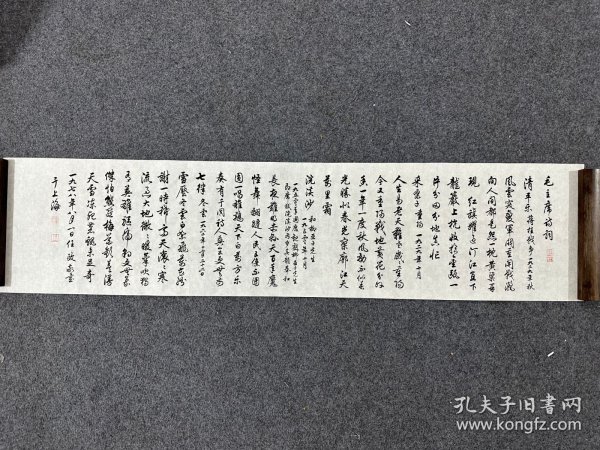 毛主席诗词
清平乐 蒋桂战争 一九二九年秋
风云突变军阀重开战洒
向人间都是怨一枕黄粱再
现 红旗跃过汀江直下
龙岩上杭收拾金瓯一
片分田分地真忙
采桑子 重阳 一九二九年十月
人生易老天难老岁岁重阳
今又重阳战地黄花分外
香 一年一度秋风劲不似春
光胜似春光寥廓江天
万里霜
浣溪沙 和柳亚子先生
一九五〇年十月
长夜难明赤县天百年魔
怪舞翩跹人民五亿不团
圆 一唱雄鸡天下白万方乐
奏有于阗诗人兴会更无前
七律 冬云 一九六二年十二月二十六日
雪压冬云白絮飞万花纷
谢一时稀高天滚滚寒
流急大地微微暖气吹独
有英雄驱虎豹更无豪
杰怕熊罴梅花欢喜漫
天雪冻死苍蝇未足奇
一九七八年八月一日任政敬书
于上海
孔夫子旧书网
www.kongfz.com